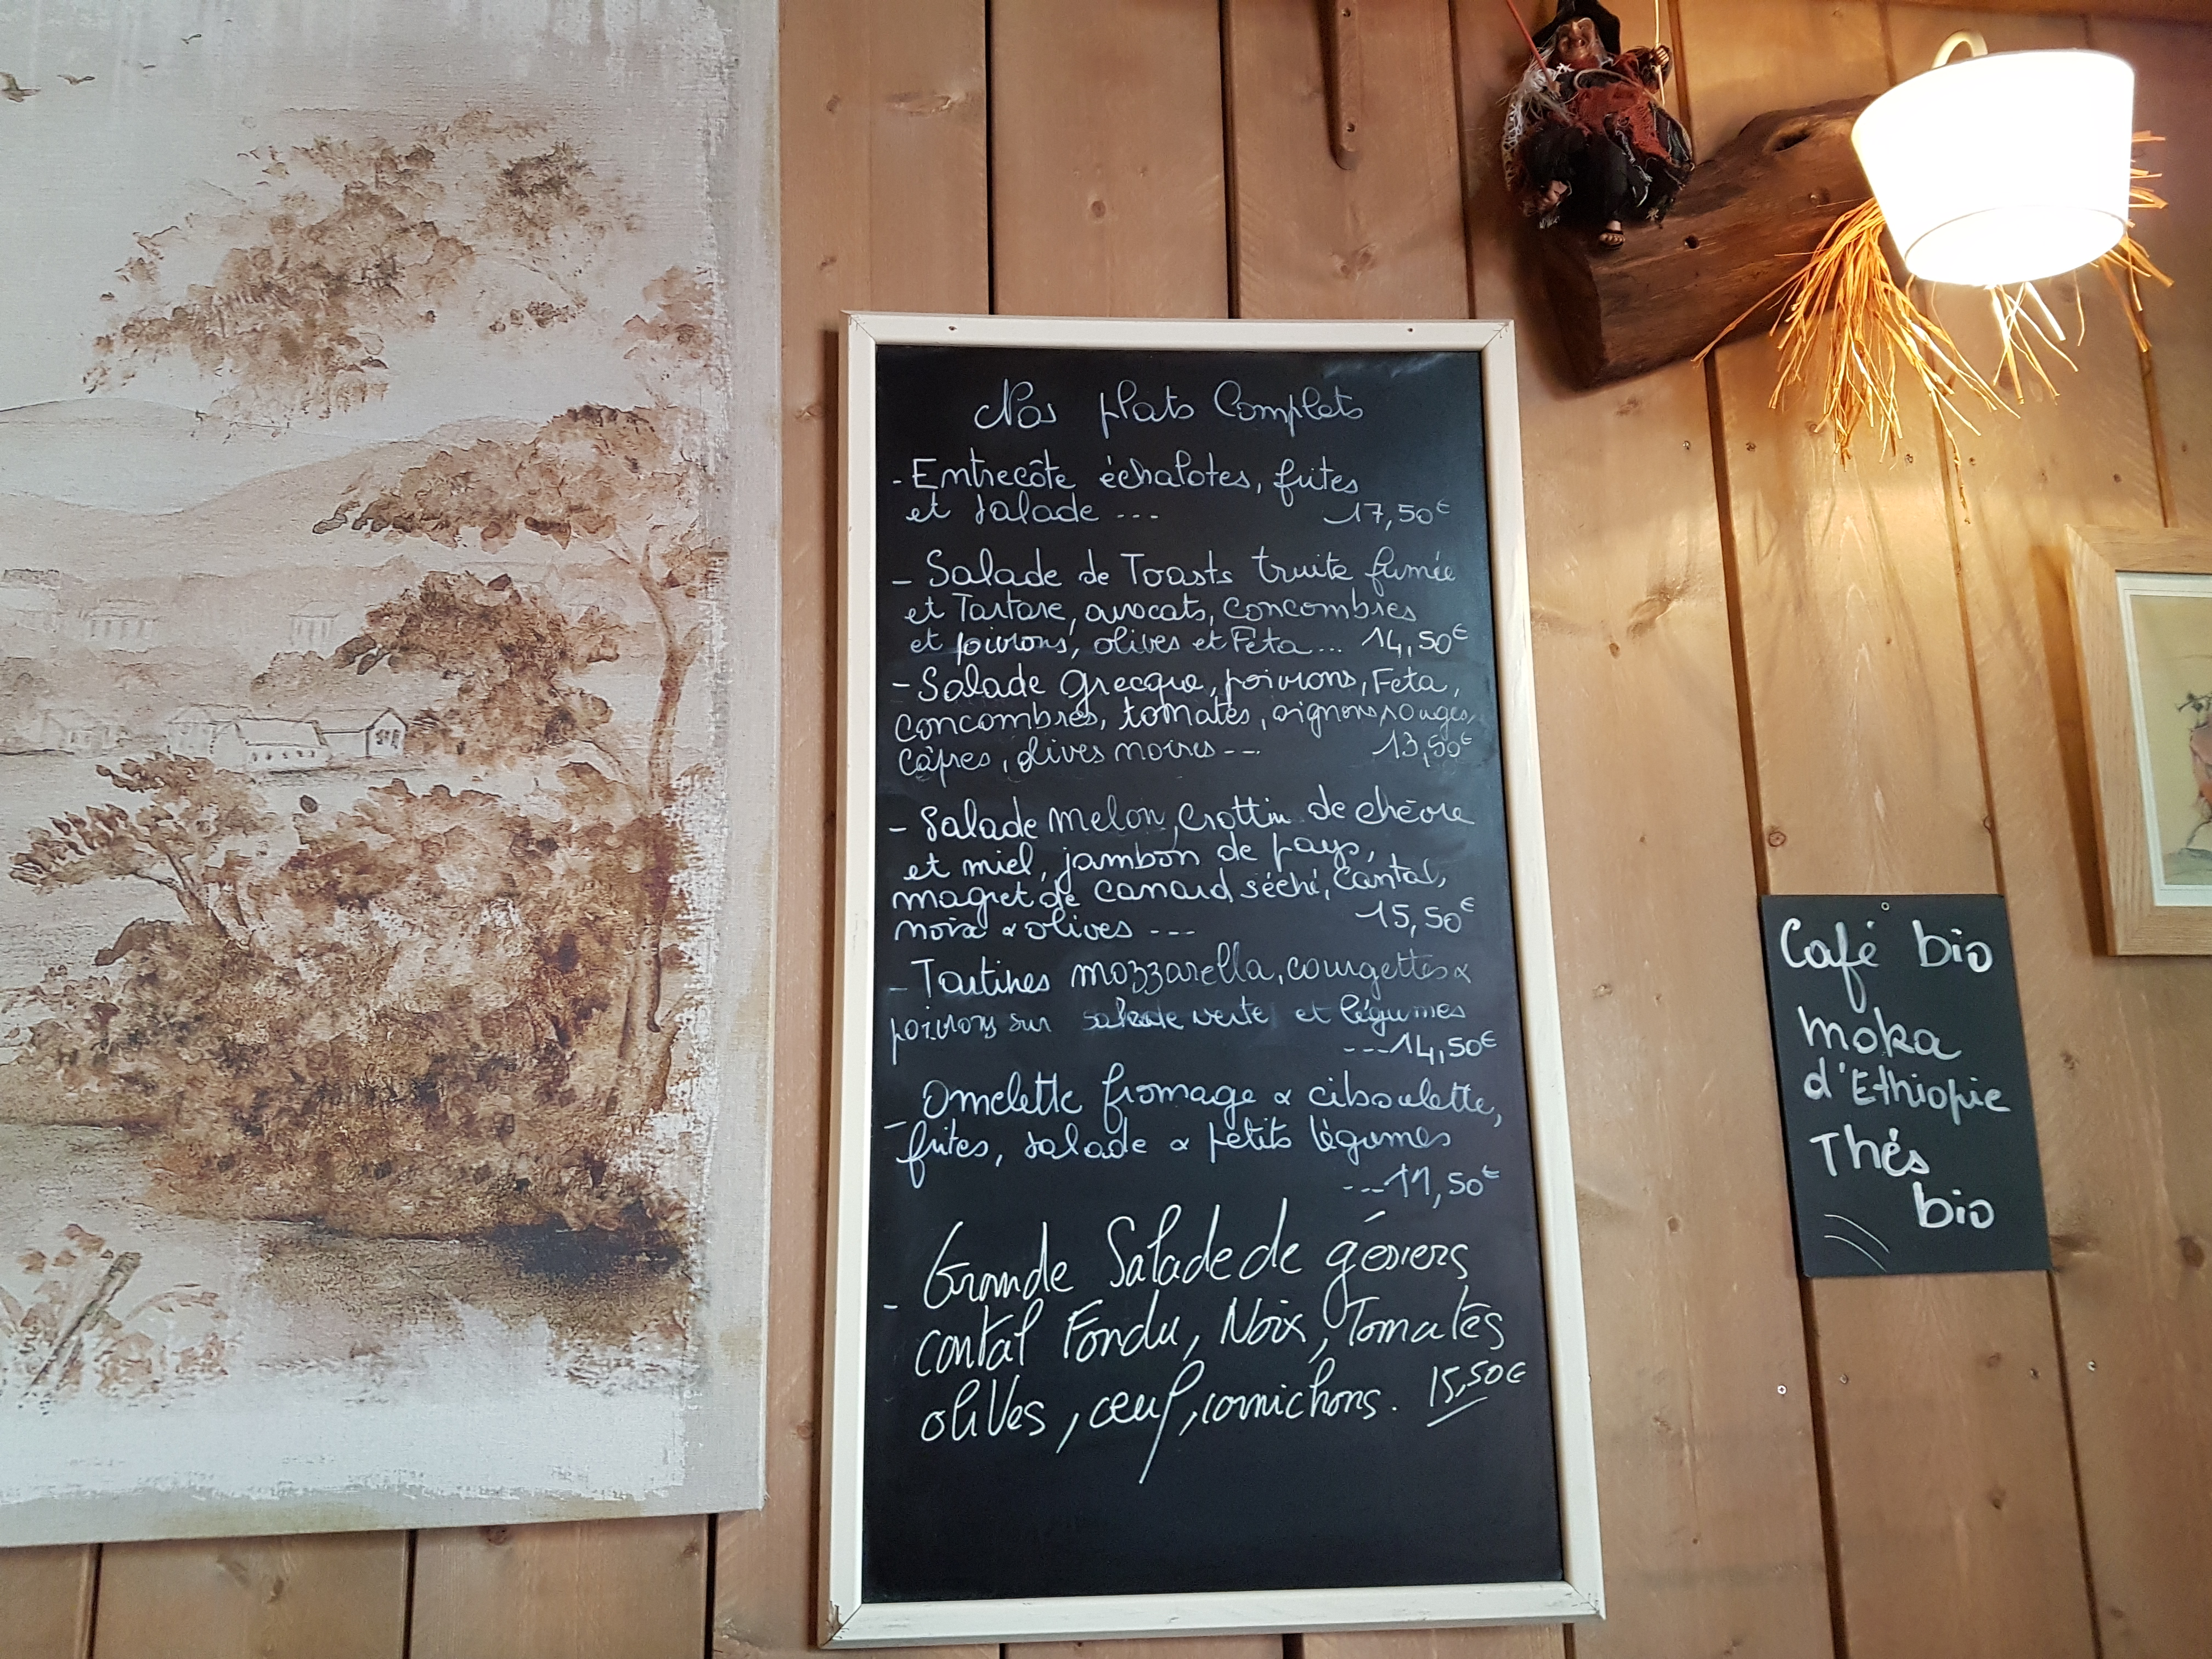 Nos plats Complets
- Entrecôte échalotes, frites
et salade --- 17,50€
- Salade de Toasts truite fumée
et Tartare, avocats, concombres
et poivrons, olives et Feta... 14,50€
- Salade grecque, poivrons, Feta,
concombres, tomates, oignons rouges,
câpres, olives noires --- 13,50€
- Salade melon, Crottin de chèvre
et miel, jambon de pays,
magret de canard séché, Cantal,
noix & olives --- 15,50€
- Tartines mozzarella, courgettes &
poivrons sur salade verte et légumes
---14,50€
- Omelette fromage & ciboulette,
frites, salade & petits légumes
---11,50€
- Grande Salade de gésiers
cantal Fondu, Noix, Tomates
oliVes, oeuf, cornichons. 15,50€
Café bio
moka
d'Ethiopie
Thés
bio